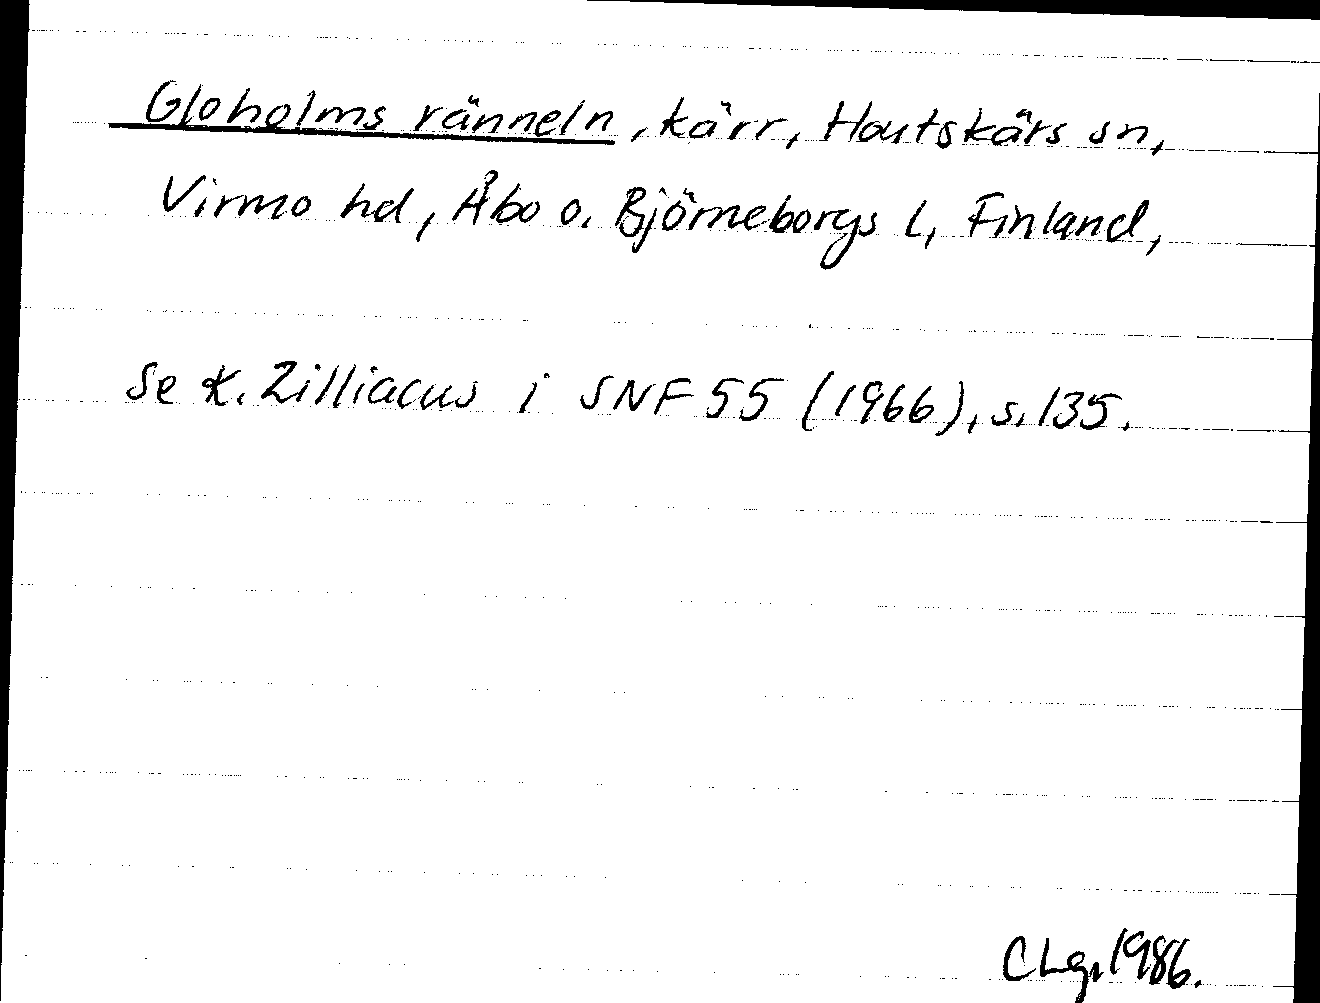 Gloholms ränneln, kärr, Houtskärs sn,
Virmo hd, Åbo o. Björneborgs l, Finland,
se K. Zilliacus i SNF 55 (1966), s. 135.
CLg. 1986.